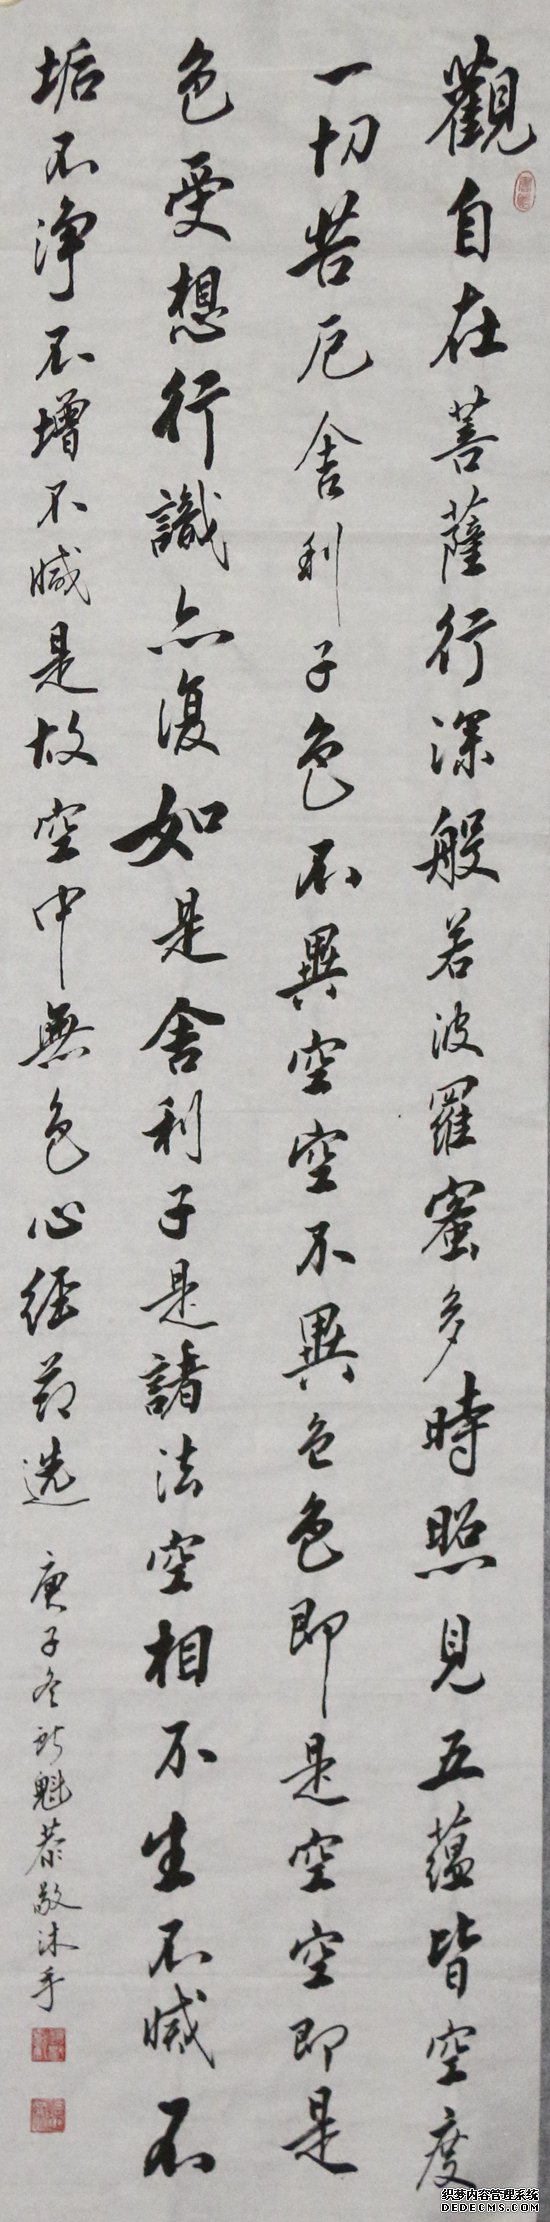 觀自在菩薩行深般若波羅蜜多時照見五蘊皆空度
一切苦厄舍利子色不異空空不異色色即是空空即是
色受想行識亦復如是舍利子是諸法空相不生不滅不
垢不淨不增不減是故空中無色心經節選
庚子冬魁恭敬沐手
织梦内容管理系统
DEDECMS.COM